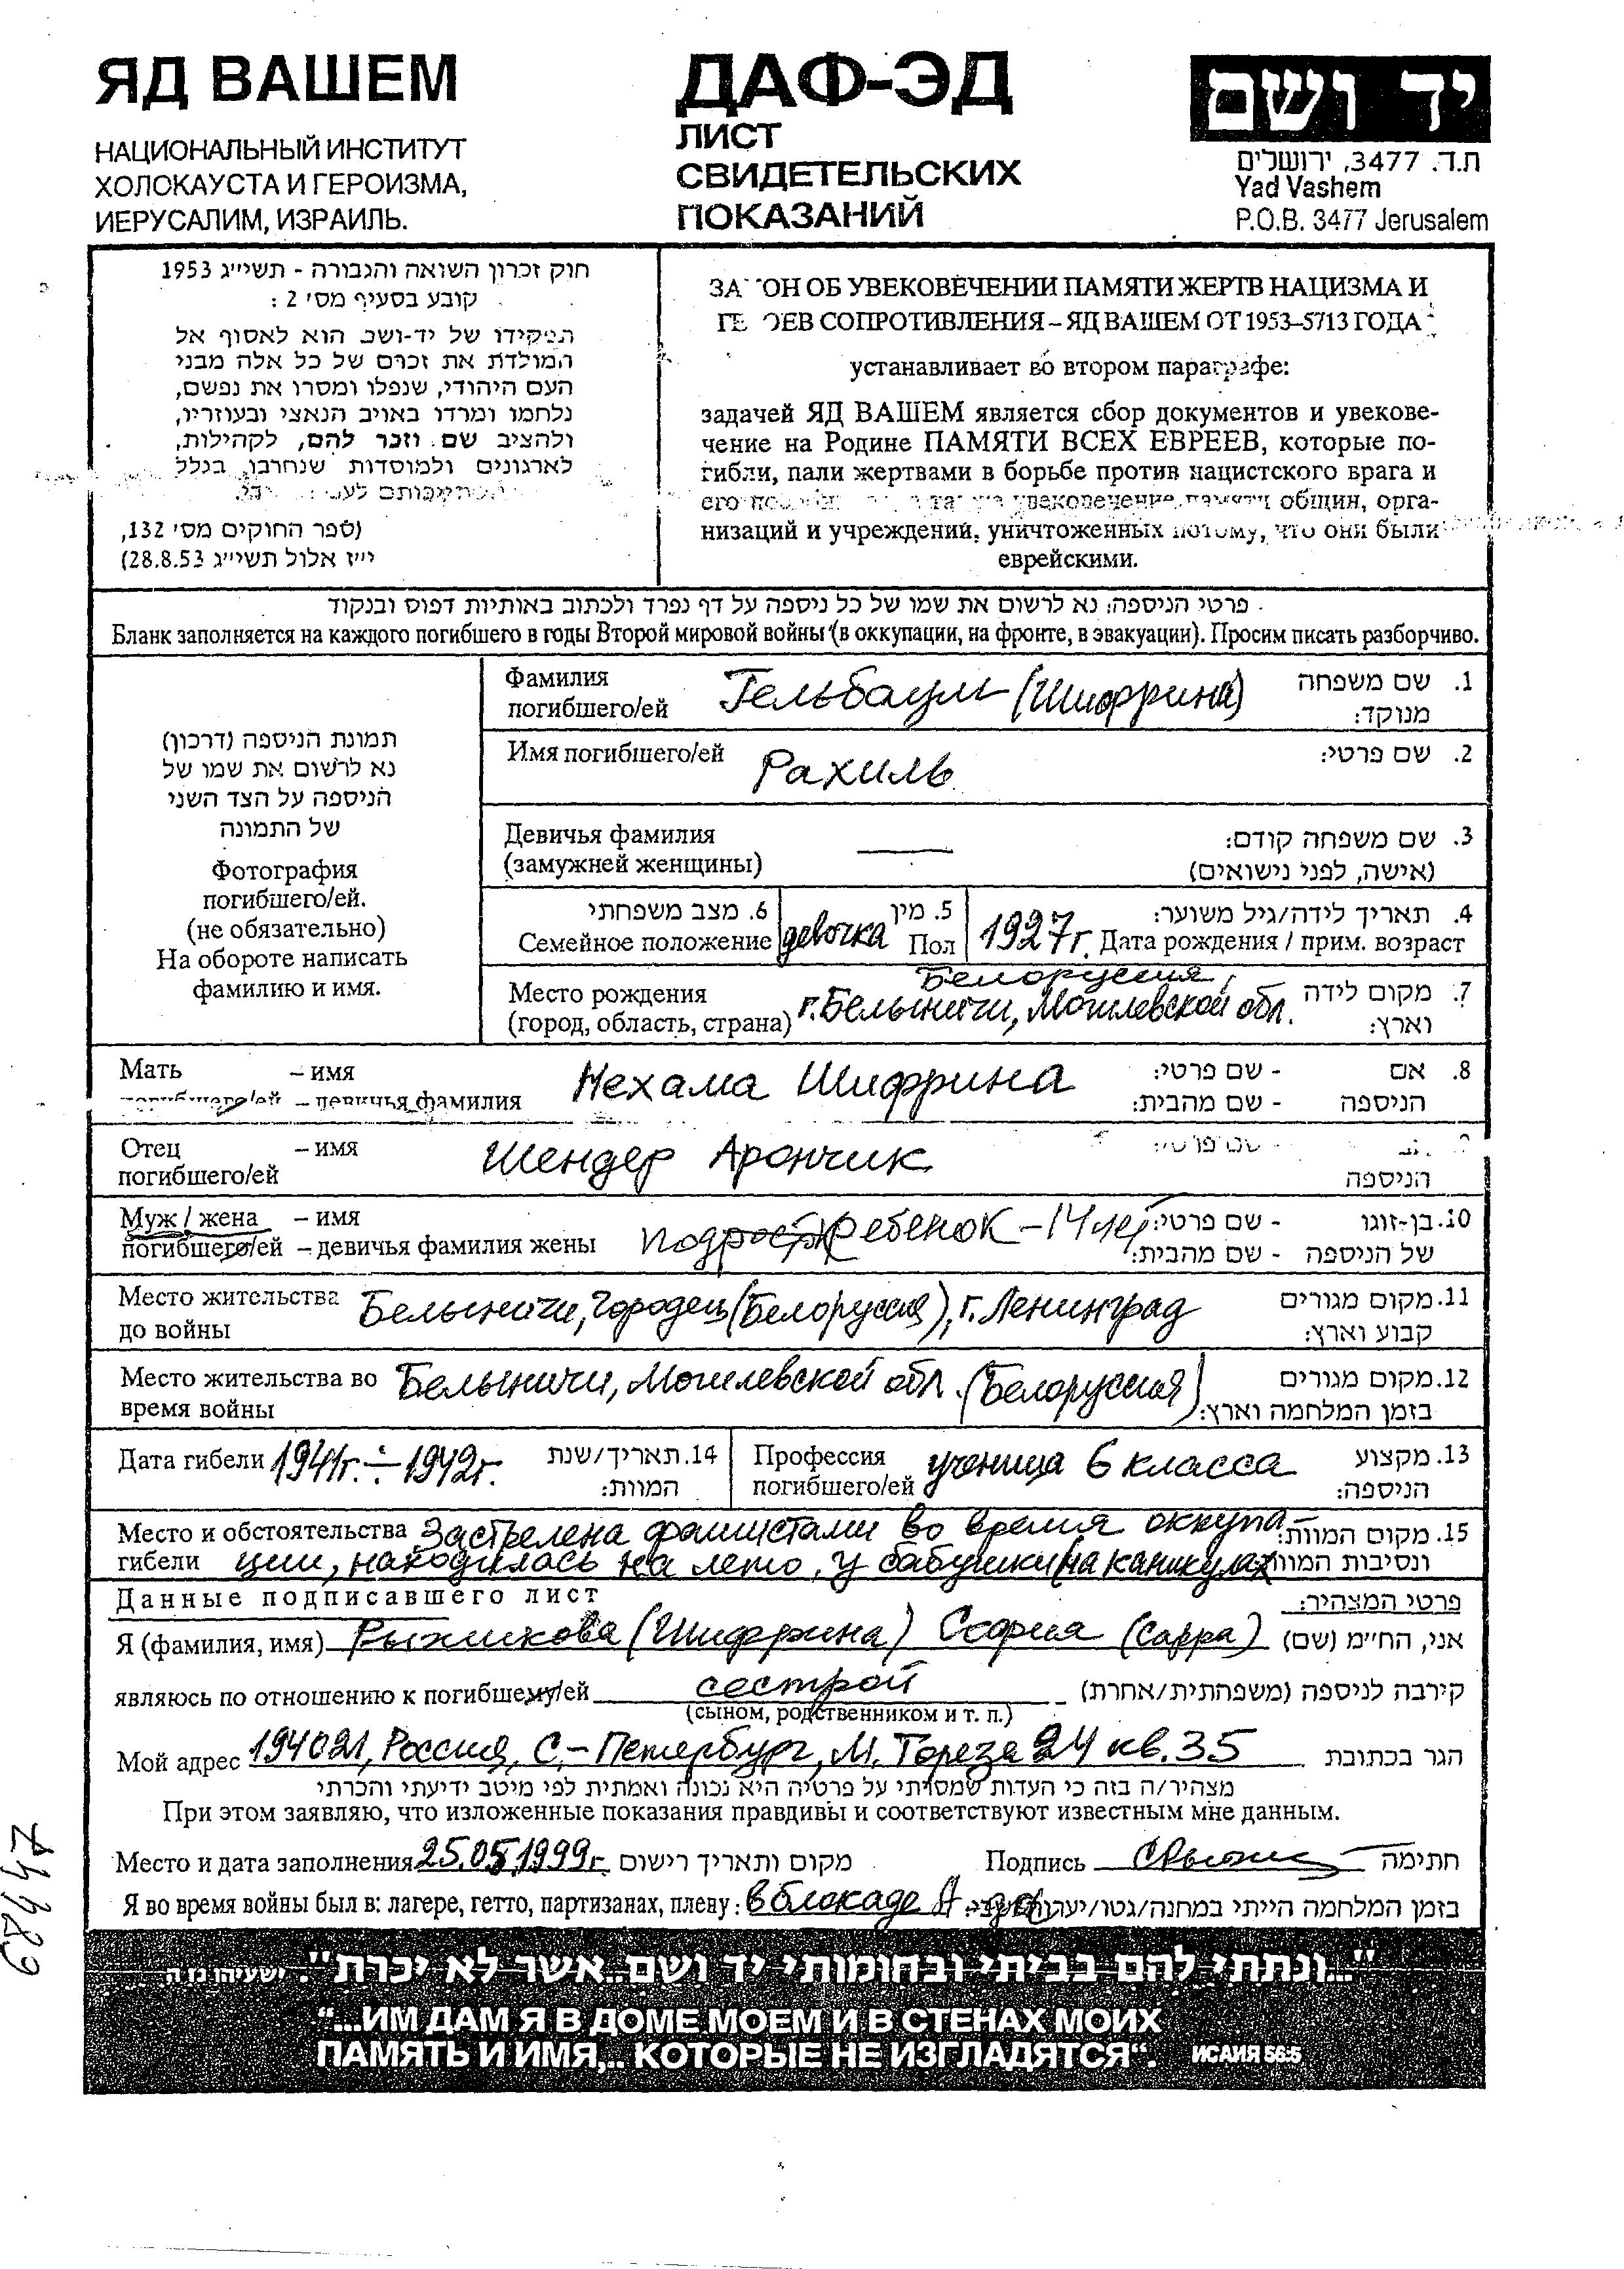 ЯД ВАШЕМ
НАЦИОНАЛЬНЫЙ ИНСТИТУТ
ХОЛОКАУСТА И ГЕРОИЗМА,
ИЕРУСАЛИМ, ИЗРАИЛЬ.
ДАФ-ЭД
ЛИСТ
СВИДЕТЕЛЬСКИХ
ПОКАЗАНИЙ
יד ושם
ת.ד. 3477, ירושלים
Yad Vashem
P.O.B. 3477 Jerusalem
חוק זכרון השואה והגבורה - תשי״ג 1953
קובע בסעיף מס׳ 2 :
תפקידו של יד-ושם הוא לאסוף אל
המולדת את זכרם של כל אלה מבני
העם היהודי, שנפלו ומסרו את נפשם,
נלחמו ומרדו באויב הנאצי ובעוזריו,
ולהציב שם וזכר להם, לקהילות,
לארגונים ולמוסדות שנחרבו בגלל
(ספר החוקים מס׳ 132,
י״ז אלול תשי״ג 28.8.53)
ЗАКОН ОБ УВЕКОВЕЧЕНИИ ПАМЯТИ ЖЕРТВ НАЦИЗМА И
ГЕРОЕВ СОПРОТИВЛЕНИЯ – ЯД ВАШЕМ ОТ 1953–5713 ГОДА
устанавливает во втором параграфе:
задачей ЯД ВАШЕМ является сбор документов и увекове-
чение на Родине ПАМЯТИ ВСЕХ ЕВРЕЕВ, которые по-
гибли, пали жертвами в борьбе против нацистского врага и
его увековечение памяти общин, орга-
низаций и учреждений, уничтоженных потому, что они были
еврейскими.
פרטי הניספה: נא לרשום את שמו של כל ניספה על דף נפרד ולכתוב באותיות דפוס ובנקוד
Бланк заполняется на каждого погибшего в годы Второй мировой войны (в оккупации, на фронте, в эвакуации). Просим писать разборчиво.
תמונת הניספה (דרכון)
נא לרשום את שמו של
הניספה על הצד השני
של התמונה
Фотография
погибшего/ей.
(не обязательно)
На обороте написать
фамилию и имя.
Фамилия погибшего/ей Гельбаум (Шифрина) 1. שם משפחה מנוקד:
Имя погибшего/ей Рахиль 2. שם פרטי:
Девичья фамилия (замужней женщины) — 3. שם משפחה קודם: (אישה, לפני נישואים)
6. מצב משפחתי Семейное положение
девочка 5. מין Пол
1927 г. 4. תאריך לידה/גיל משוער: Дата рождения / прим. возраст
Белоруссия,
Место рождения (город, область, страна) г. Белыничи, Могилевской обл. 7. מקום לידה וארץ:
Мать – имя – девичья фамилия Нехама Шифрина 8. אם הניספה - שם פרטי: - שם מהבית:
Отец погибшего/ей – имя Шендер Арончик הניספה
Муж / жена погибшего/ей – имя – девичья фамилия жены ребенок – 14 лет 10. בן-זוגו של הניספה - שם פרטי: - שם מהבית:
Место жительства до войны Белыничи, Городец (Белоруссия), г. Ленинград 11. מקום מגורים קבוע וארץ:
Место жительства во время войны Белыничи, Могилевской обл. (Белоруссия) 12. מקום מגורים בזמן המלחמה וארץ:
Дата гибели 1941г. ÷ 1942г. 14. תאריך/שנת המוות:
Профессия погибшего/ей ученица 6 класса 13. מקצוע הניספה:
Место и обстоятельства Застрелена фашистами во время оккупа- 15. מקום המוות
гибели ции, находилась на лето, у бабушки (на каникулах ונסיבות המוות
Данные подписавшего лист פרטי המצהיר:
Я (фамилия, имя) Рыжикова (Шифрина) София (Сарра) אני, הח״מ (שם)
являюсь по отношению к погибшему/ей сестрой קירבה לניספה (משפחתית/אחרת)
(сыном, родственником и т. п.)
Мой адрес 194021, Россия, С.-Петербург, М. Тореза 24 кв. 35 הגר בכתובת
מצהיר/ה בזה כי העדות שמסרתי על פרטיה היא נכונה ואמתית לפי מיטב ידיעתי והכרתי
При этом заявляю, что изложенные показания правдивы и соответствуют известным мне данным.
Место и дата заполнения 25.05.1999г. מקום ותאריך רישום Подпись חתימה
Я во время войны был в: лагере, гетто, партизанах, плену: в блокаде בזמן המלחמה הייתי במחנה/גטו/יערות
"...ונתתי להם בביתי ובחומותי יד ושם...אשר לא יכרת". ישעיהו נו ה
"...ИМ ДАМ Я В ДОМЕ МОЕМ И В СТЕНАХ МОИХ
ПАМЯТЬ И ИМЯ,.. КОТОРЫЕ НЕ ИЗГЛАДЯТСЯ". ИСАИЯ 56:5